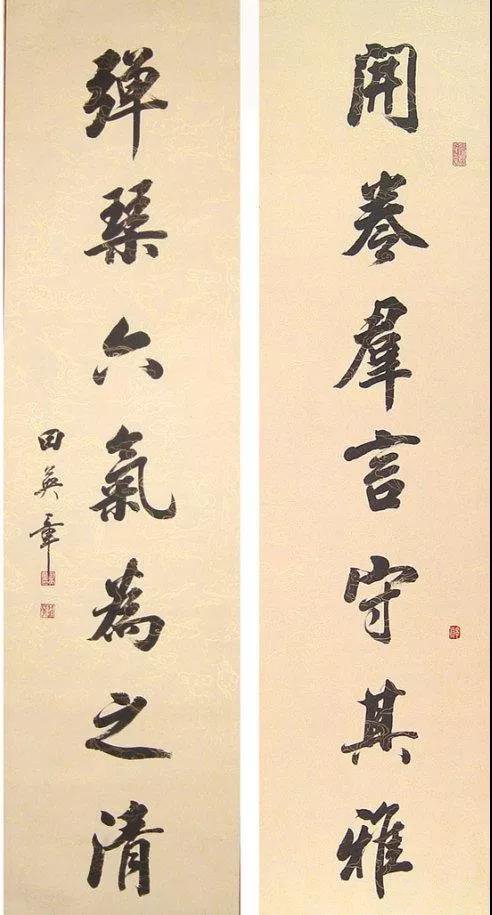 開卷羣言守其雅
彈琴六氣為之清
田英章